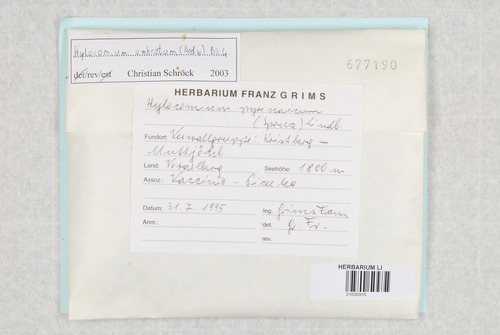 Hylocomium umbratum (Hedw.) B.S.G.
det/rev/cst Christian Schröck 2003
677190
HERBARIUM FRANZ GRIMS
Hylocomium pyrenaicum
(Spruce) Lindb.
Fundort: Verwallgruppe: Kristberg –
Muttjöchl
Land: Vorarlberg Seehöhe: 1800 m
Assoz.: Vaccinio - Piceetea
Datum: 31. 7. 1995 leg. Grims Franz
Anm.: det. G. Fr.
rev.
HERBARIUM LI